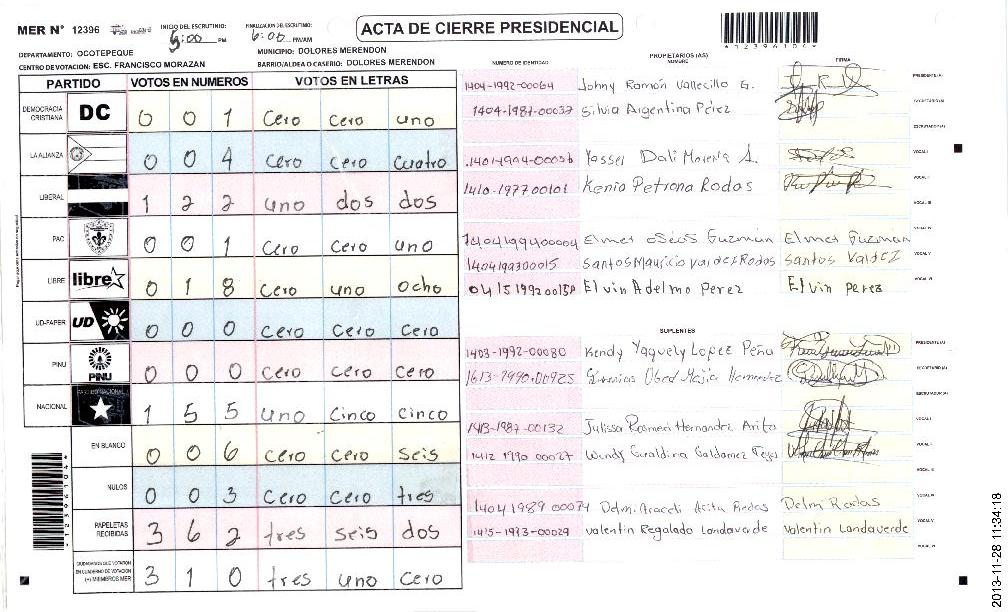 MER N° 12396
INICIO DEL ESCRUTINIO: 5:00 PM
FINALIZACION DEL ESCRUTINIO: 6:00 PM/AM
ACTA DE CIERRE PRESIDENCIAL
*12396104*
DEPARTAMENTO: OCOTEPEQUE
MUNICIPIO: DOLORES MERENDON
CENTRO DE VOTACION: ESC. FRANCISCO MORAZAN
BARRIO/ALDEA O CASERIO: DOLORES MERENDON
PARTIDO VOTOS EN NUMEROS VOTOS EN LETRAS
DEMOCRACIA CRISTIANA DC 0 0 1 Cero Cero uno
LA ALIANZA 0 0 4 Cero Cero Cuatro
LIBERAL 1 2 2 uno dos dos
PAC 0 0 1 Cero Cero uno
LIBRE libre 0 1 8 Cero uno Ocho
UD-FAPER UD 0 0 0 Cero Cero Cero
PINU PINU 0 0 0 Cero Cero Cero
NACIONAL 1 5 5 uno Cinco Cinco
EN BLANCO 0 0 6 Cero Cero Seis
NULOS 0 0 3 Cero Cero tres
PAPELETAS RECIBIDAS 3 6 2 tres seis dos
CIUDADANOS QUE VOTARON EN CUADERNO DE VOTACION (+) MIEMBROS MER 3 1 0 tres uno Cero
PROPIETARIOS (AS)
NUMERO DE IDENTIDAD NOMBRE FIRMA
1404-1992-00064 Johny Ramón Vallecillo G. PRESIDENTE (A)
1404-1987-00037 Silvia Argentina Pérez SECRETARIO (A)
ESCRUTADOR (A)
1401-1994-00036 Yosser Dali Morena A. VOCAL I
1410-197700101 Kenia Petrona Rodas
VOCAL III
1404199400004 Elmer oséas Guzmán Elmer Guzmán
1404199300015 Santos Mauricio valdez Rodas Santos Valdez VOCAL V
Elvin Adelmo Perez Elvin Perez
SUPLENTES
1403-1992-00080 Kendy Yaquely Lopez Peña PRESIDENTE (A)
1613-1990-00925 Obed Mejia Hernandez SECRETARIO (A)
ESCRUTADOR (A)
1413-1987-00132 Julissa Rosmeri Hernandez Arita VOCAL I
1412 1990 00027 Wendy Geraldina Galdamez
1404 1989 00074 Delmi Araceli Arita Rodas Delmi Rodas
1415-1973-00029 Valentin Regalado Landaverde Valentin Landaverde VOCAL V
2013-11-28 11:34:18